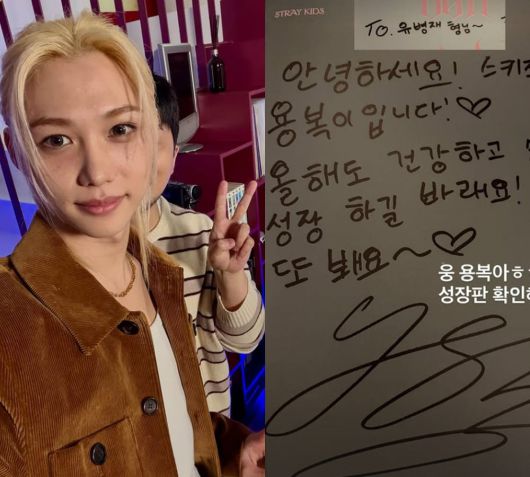 STRAY KIDS
To. 유병재 형님~
안녕하세요! 스키즈
용복이입니다!♡
올해도 건강하고
성장 하길 바래요!
또 봬요~♡
웅 용복아ㅎ
성장판 확인